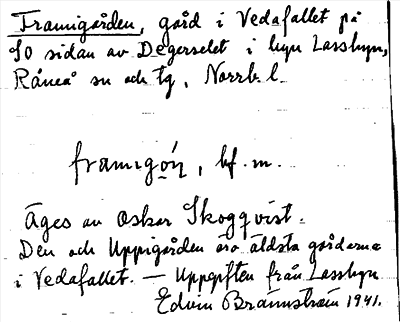 Framigården, gård i Vedafallet på
SO sidan av Degerselet i byn Lassbyn,
Råneå sn och tg, Norrb. l.
framigóṇ, bf. m.
Äges av Oskar Skogqvist.
Den och Uppigården äro äldsta gårdarna
i Vedafallet. — Uppgiften från Lassbyn
Edvin Brännström 1941.